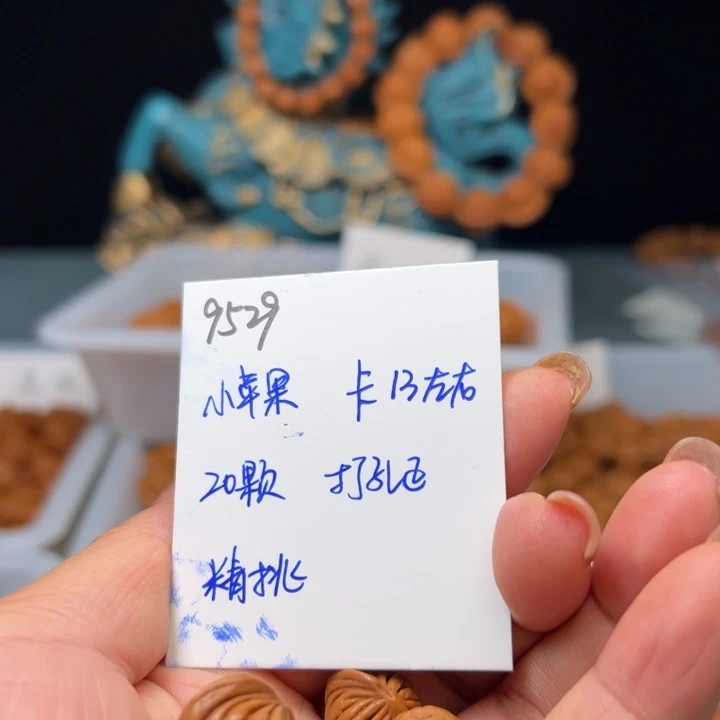 9529
小苹果 卡13左右
20颗 打孔正
精挑